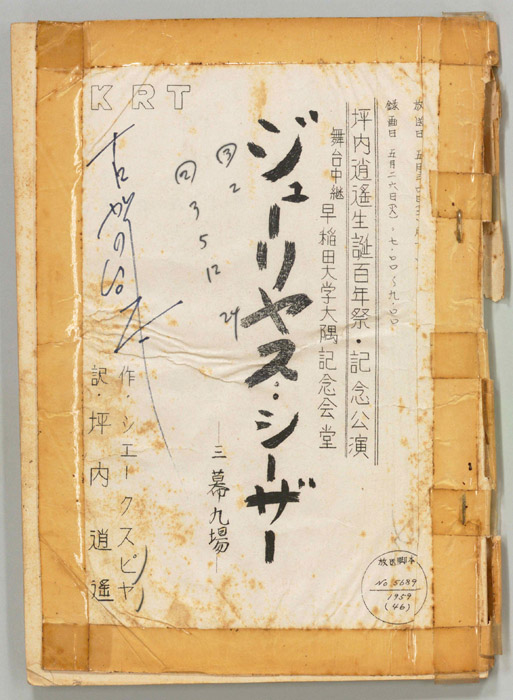 放送日 五月
録画日 五月二六日(火)・七・〇〇〜九・〇〇
坪内逍遙生誕百年祭・記念公演
舞台中継 早稲田大学大隈記念会堂
ジューリヤス・シーザー
―三幕九場―
③ 2
② 3 5 12 24
KRT
作・シェークスピヤ
訳・坪内逍遙
放送脚本
No 5689
1959
(46)